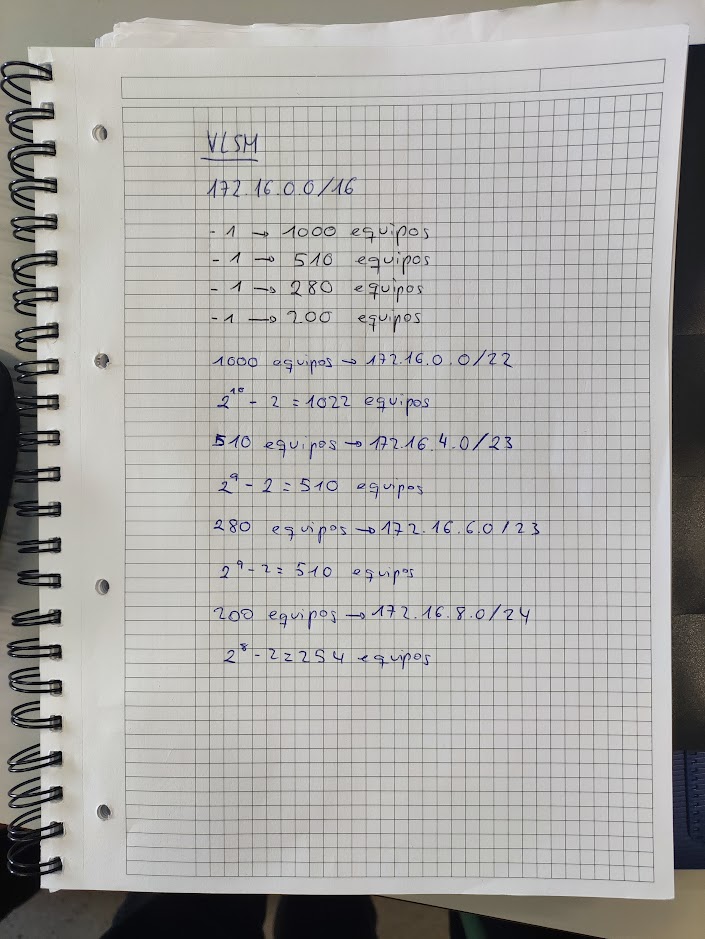 VLSM
172.16.0.0/16
- 1 → 1000 equipos
- 1 → 510 equipos
- 1 → 280 equipos
- 1 → 200 equipos
1000 equipos → 172.16.0.0/22
2¹⁰ - 2 = 1022 equipos
510 equipos → 172.16.4.0/23
2⁹ - 2 = 510 equipos
280 equipos → 172.16.6.0/23
2⁹ - 2 = 510 equipos
200 equipos → 172.16.8.0/24
2⁸ - 2 = 254 equipos